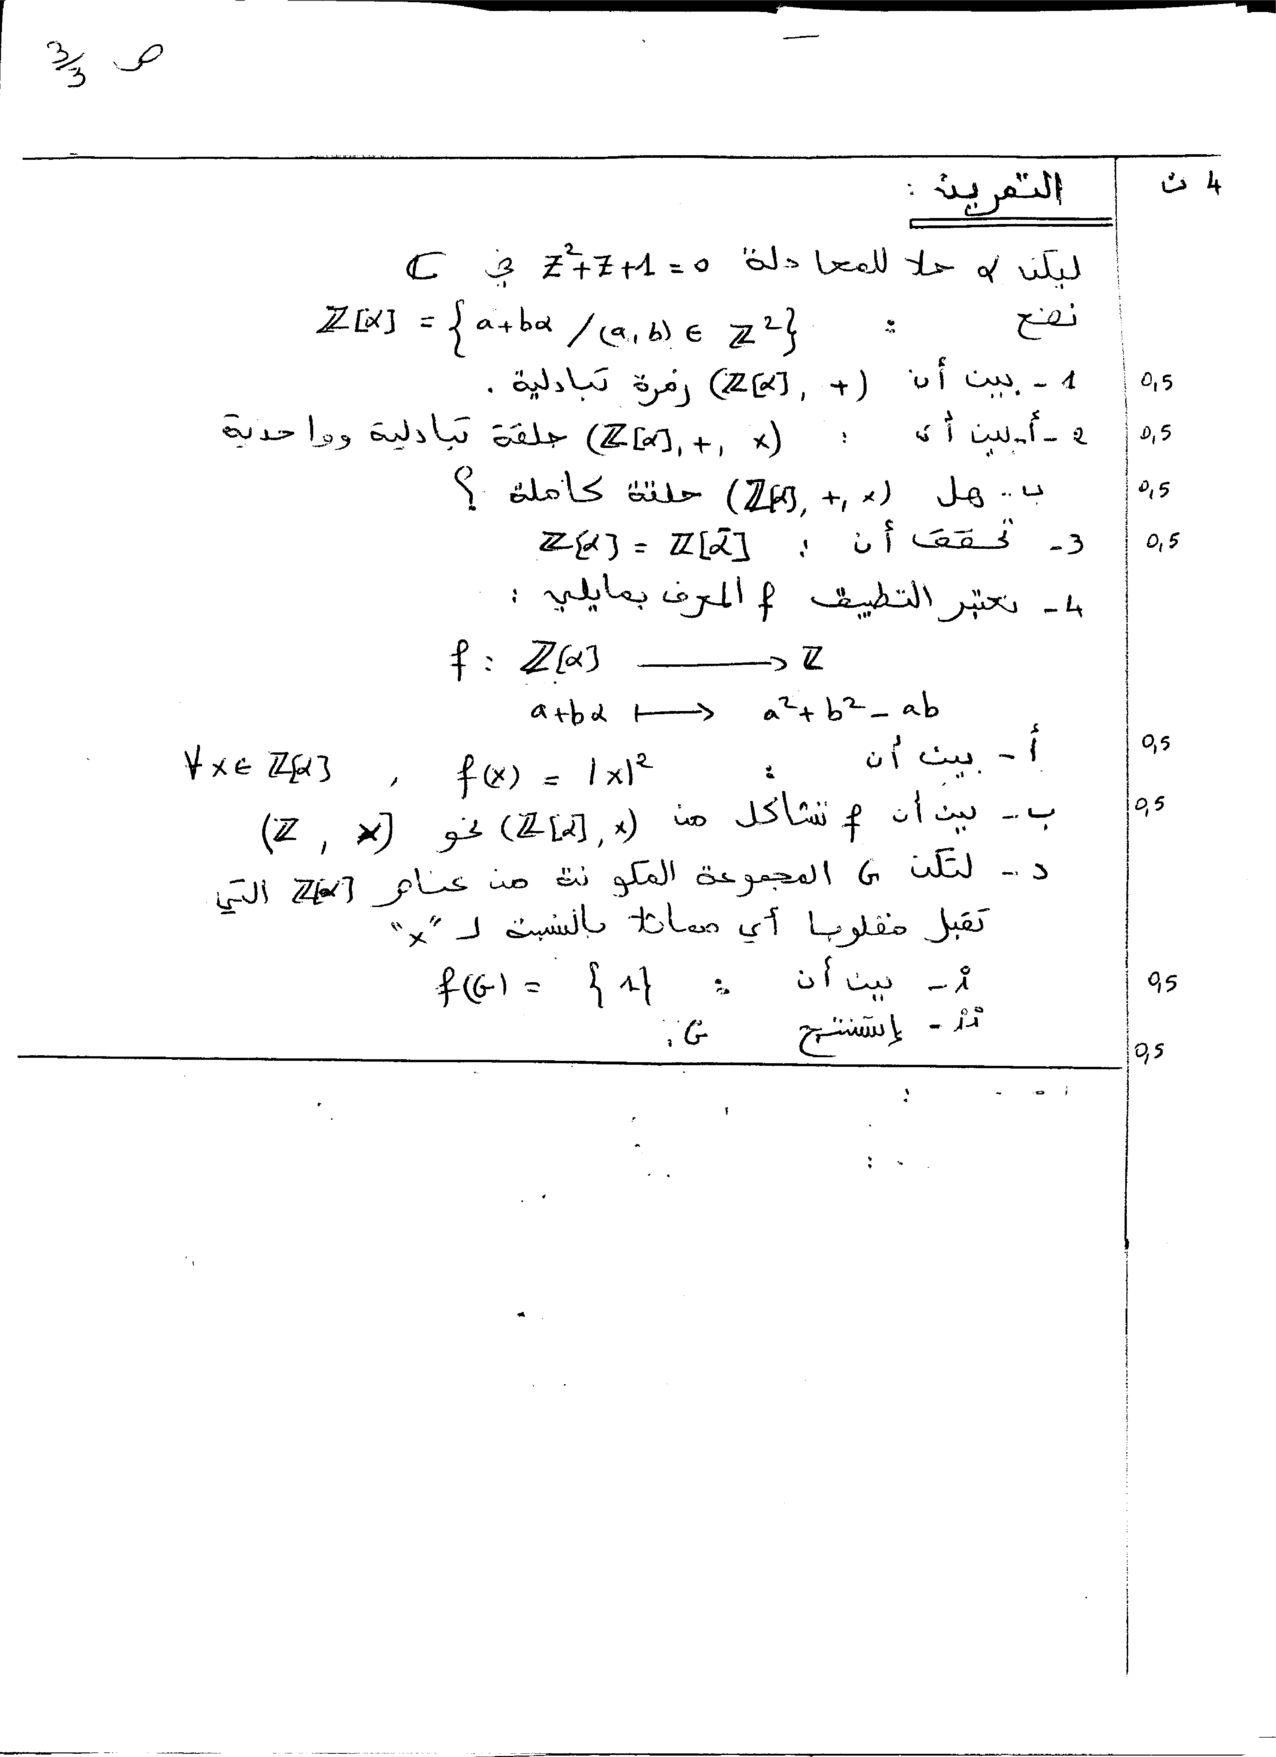 ص 3/3
4 ن
التمرين :
ليكن α حلا للمعادلة z²+z+1=0 في ℂ
نضع : ℤ[α] = {a+bα /(a,b) ∈ ℤ²}
0,5 1 - بين أن (ℤ[α], +) زمرة تبادلية .
0,5 2 - أ - بين أن : (ℤ[α], +, ×) حلقة تبادلية وواحدية
0,5 ب - هل (ℤ[α], +, ×) حلقة كاملة ؟
0,5 3 - تحقق أن : ℤ[α] = ℤ[ᾱ]
4 - نعتبر التطبيق f المعرف بمايلي :
f : ℤ[α] ⟶ ℤ
a+bα ⟼ a²+b²-ab
0,5 أ - بين أن : f(x) = |x|² , ∀x∈ ℤ[α]
0,5 ب - بين أن f تشاكل من (ℤ[α], ×) نحو (ℤ, ×)
د - لتكن G المجموعة المكونة من عناصر ℤ[α] التي
تقبل مقلوبا أي مماثلا بالنسبة لـ "×"
0,5 i - بين أن : f(G) = {1}
0,5 ii - إستنتج G.